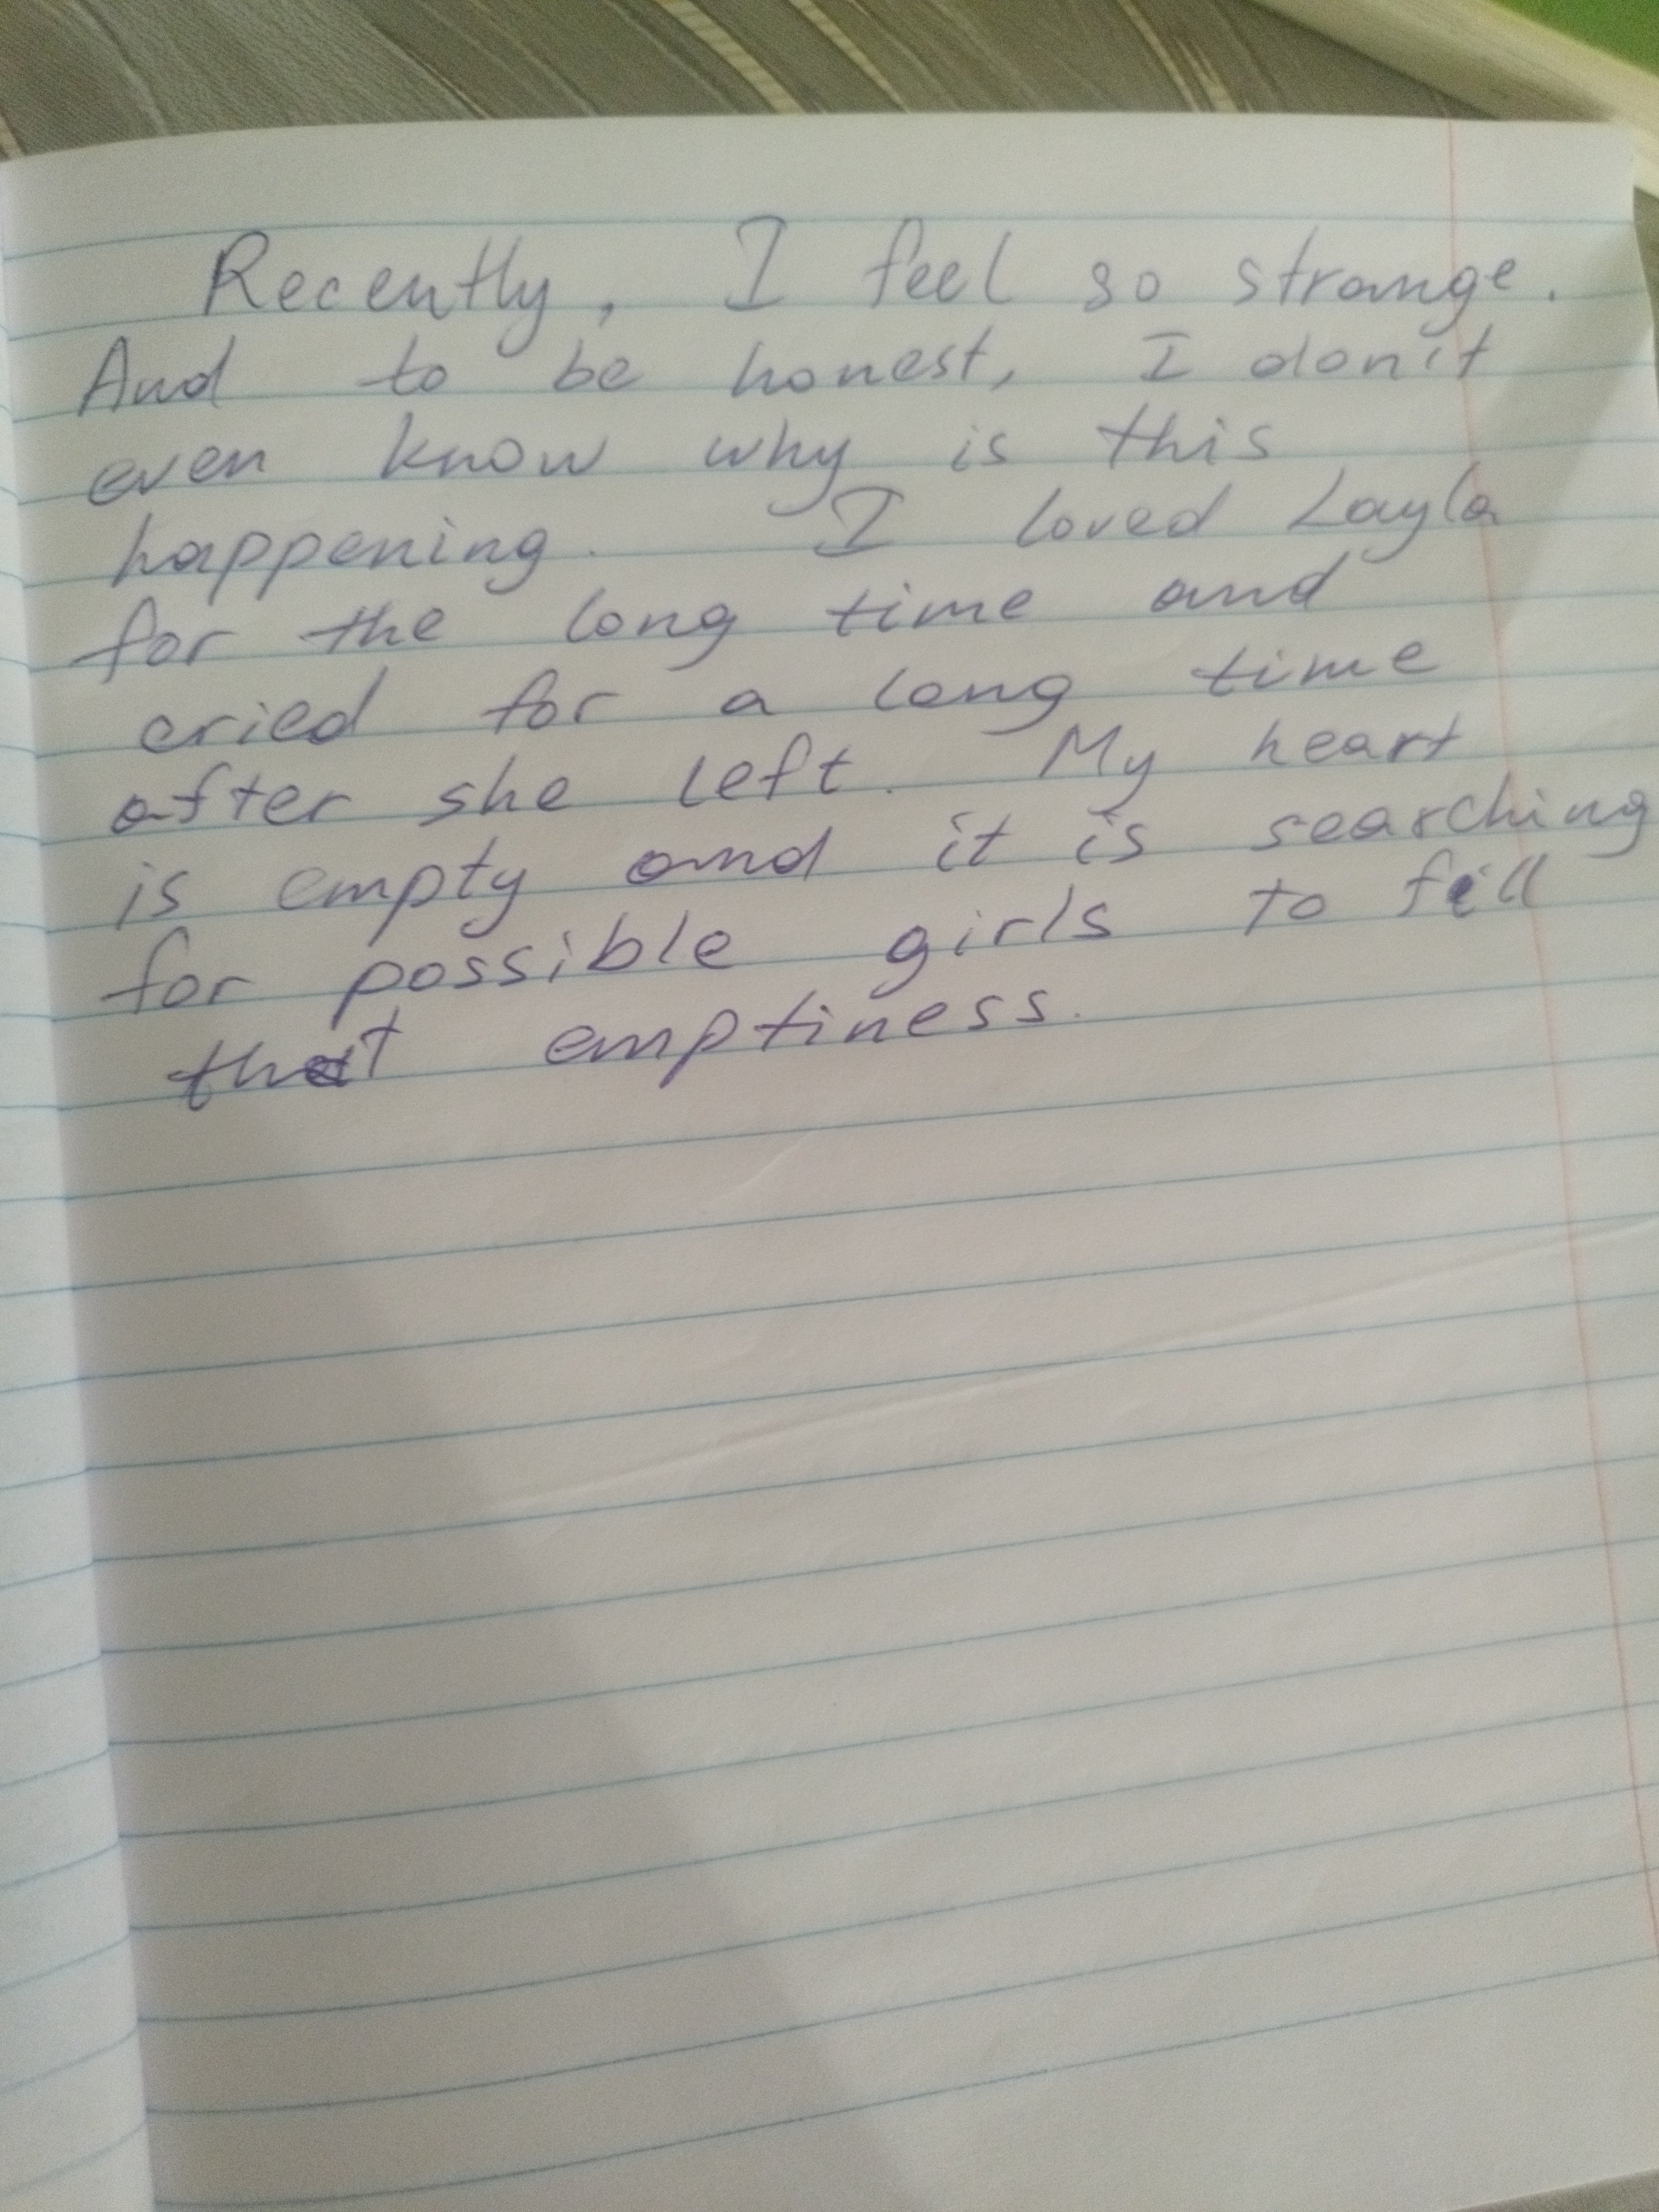 Recently, I feel so strange.
And to be honest, I don't
even know why is this
happening. I loved Layla
for the long time and
cried for a long time
after she left. My heart
is empty and it is searching
for possible girls to fill
that emptiness.